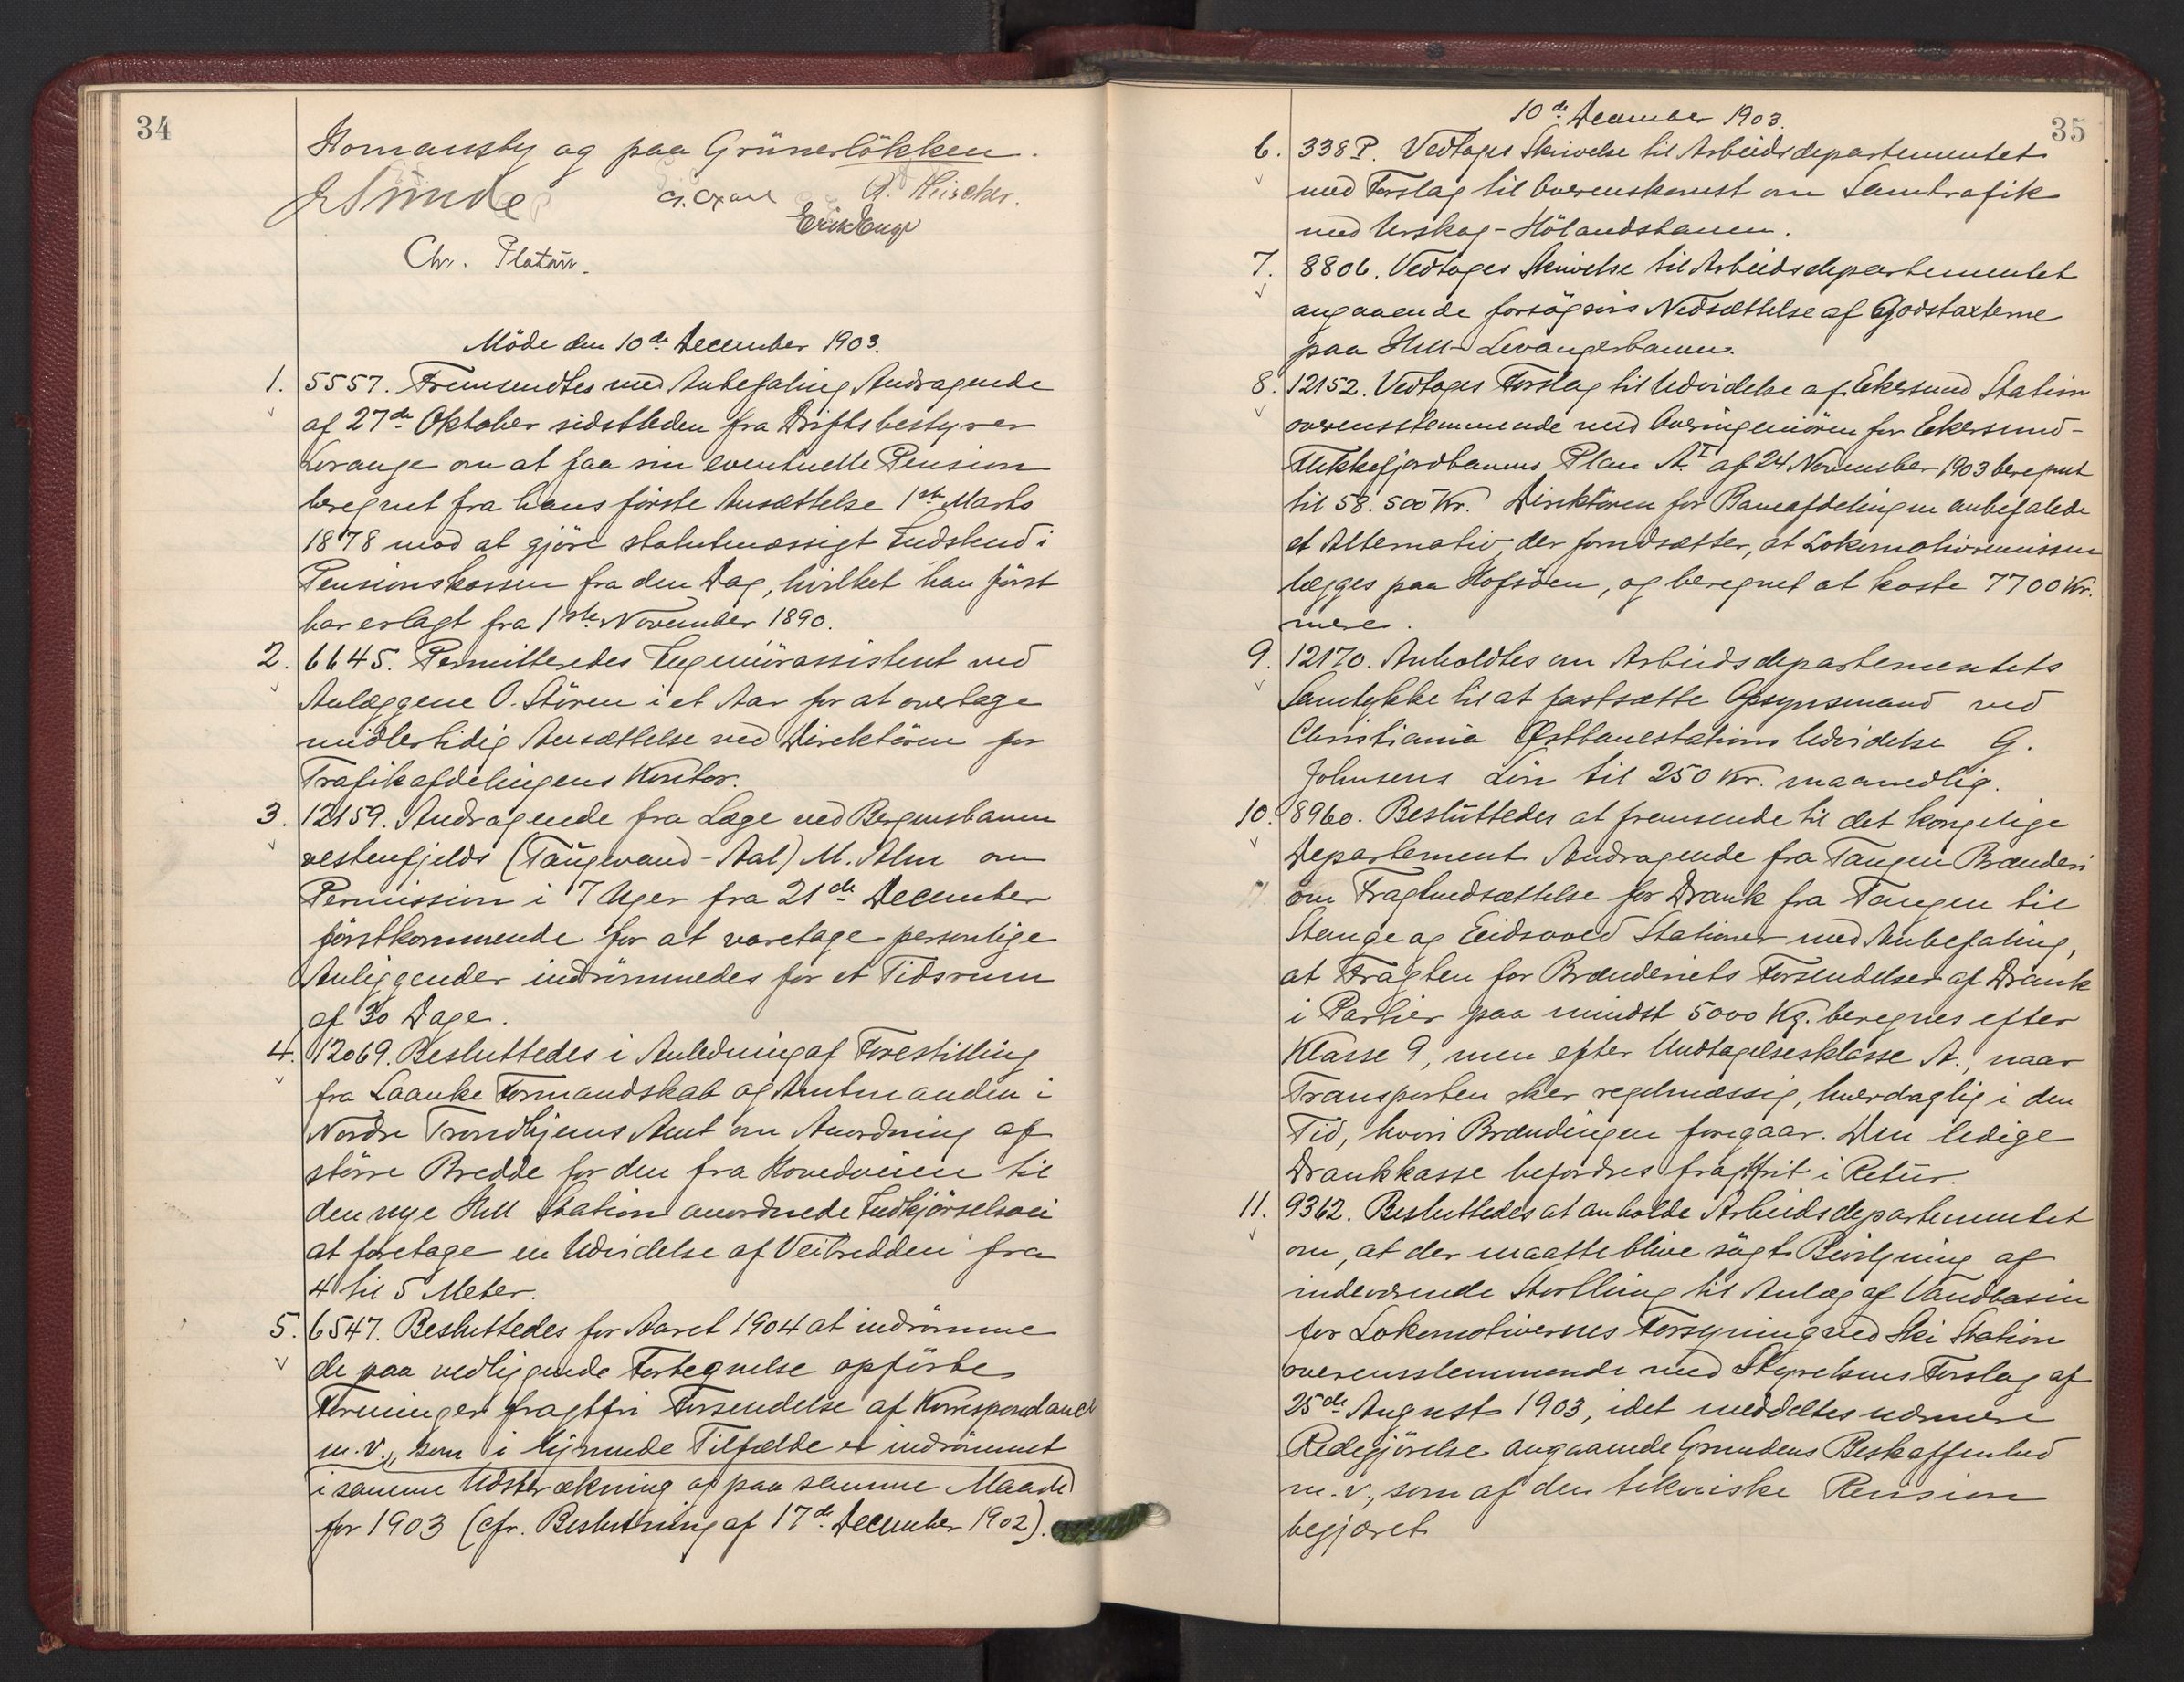 34
Homansby og paa Grünerløkken.
Chr. Platou.
Möde den 10de December 1903.
1. 5557. Fremsendtes med Anbefaling Andragende
af 27de Oktober sidstleden fra Driftsbestyrer
Lorange om at faa sin eventuelle Pension
beregnet fra hans förste Ansættelse 1ste Marts
1878 mod at gjöre statutmæssigt Indskud i
Pensionskassen fra den Dag, hvilket han först
har erlagt fra 1ste November 1890.
2. 6645. Permitteredes Ingeniörassistent ved
Anlæggene O. Stören i et Aar for at overtage
midlertidig Ansættelse ved Direktören for
Trafikafdelingens Kontor.
3. 12159. Andragende fra Læge ved Bergensbanen
vestenfjelds (Taugevand-Aal) M. Alm om
Permission i 7 Uger fra 21de December
förstkommende for at varetage personlige
Anliggender indrömmedes for et Tidsrum
af 30 Dage.
4. 12069. Besluttedes i Anledning af Forestilling
fra Laanke Formandskab og Amtmanden i
Nordre Trondhjems Amt om Anordning af
större Bredde for den fra Hovedveien til
den nye Hell Station anordnede Indkjörselsvei
at foretage en Udvidelse af Veibredden fra
4 til 5 Meter.
5. 6547. Besluttedes for Aaret 1904 at indrömme
de paa vedliggende Fortegnelse opförte
Foreninger fragtfri Forsendelse af Korrespondance
m.v., som i lignende Tilfælde er indrömmet
i samme Udstrækning og paa samme Maade
for 1903 (cfr. Beslutning af 17de December 1902).
35
10de December 1903.
6. 338 P. Vedtoges Skrivelse til Arbeidsdepartementet
med Forslag til Overenskomst om Samtrafik
med Urskog-Hölandsbanen.
7. 8806. Vedtoges Skrivelse til Arbeidsdepartementet
angaaende forsögsvis Nedsættelse af Godstaxterne
paa Hell-Levangerbanen.
8. 12152. Vedtoges Forslag til Udvidelse af Ekersund Station
overensstemmende med Overingeniören for Ekersund-
Flekkefjordbanens Plan A.I af 24 November 1903 beregnet
til 58.500 Kr. Direktören for Baneafdelingen anbefalede
et Alternativ, der forudsætter, at Lokomotivremissen
lægges paa Hofsöen, og beregnet at koste 7700 Kr.
mere.
9. 12170. Anholdtes om Arbeidsdepartementets
Samtykke til at fastsætte Opsynsmand ved
Christiania Østbanestations Udvidelse G.
Johnsens Lön til 250 Kr. maanedlig.
10. 8960. Besluttedes at fremsende til det kongelige
Departement Andragende fra Tangen Brænderi
om Fragtnedsættelse for Drank fra Tangen til
Stange og Eidsvold Stationer med Anbefaling,
at Fragten for Brænderiets Forsendelser af Drank
i Partier paa mindst 5000 Kg. beregnes efter
Klasse 9, men efter Undtagelsesklasse A., naar
Transporten sker regelmæssig, hverdaglig i den
Tid, hvori Brændingen foregaar. Den ledige
Drankkasse befordres fragtfrit i Retur.
11. 9362. Besluttedes at anholde Arbeidsdepartementet
om, at der maatte blive sögt Bevilgning af
indeværende Storthing til Anlæg af Vandbasin
for Lokomotivernes Forsyning ved Ski Station
overensstemmende med Styrelsens Forslag af
25de August 1903, idet meddeltes nærmere
Redegjörelse angaaende Grundens Beskaffenhed
m.v., som af den tekniske Revision
begjæret